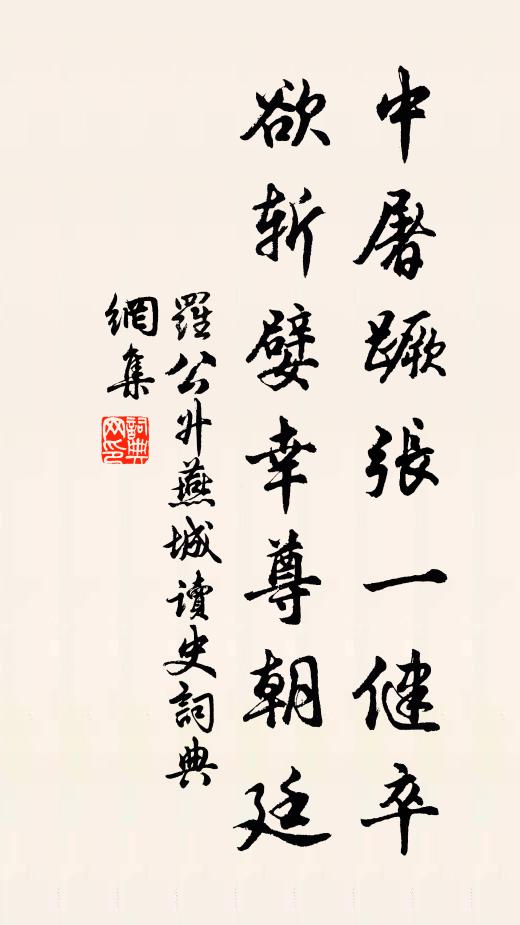 中屠蹶張一健卒
欲斬嬖幸尊朝廷
羅公升燕城讀史詞典
網集
詞典
网印